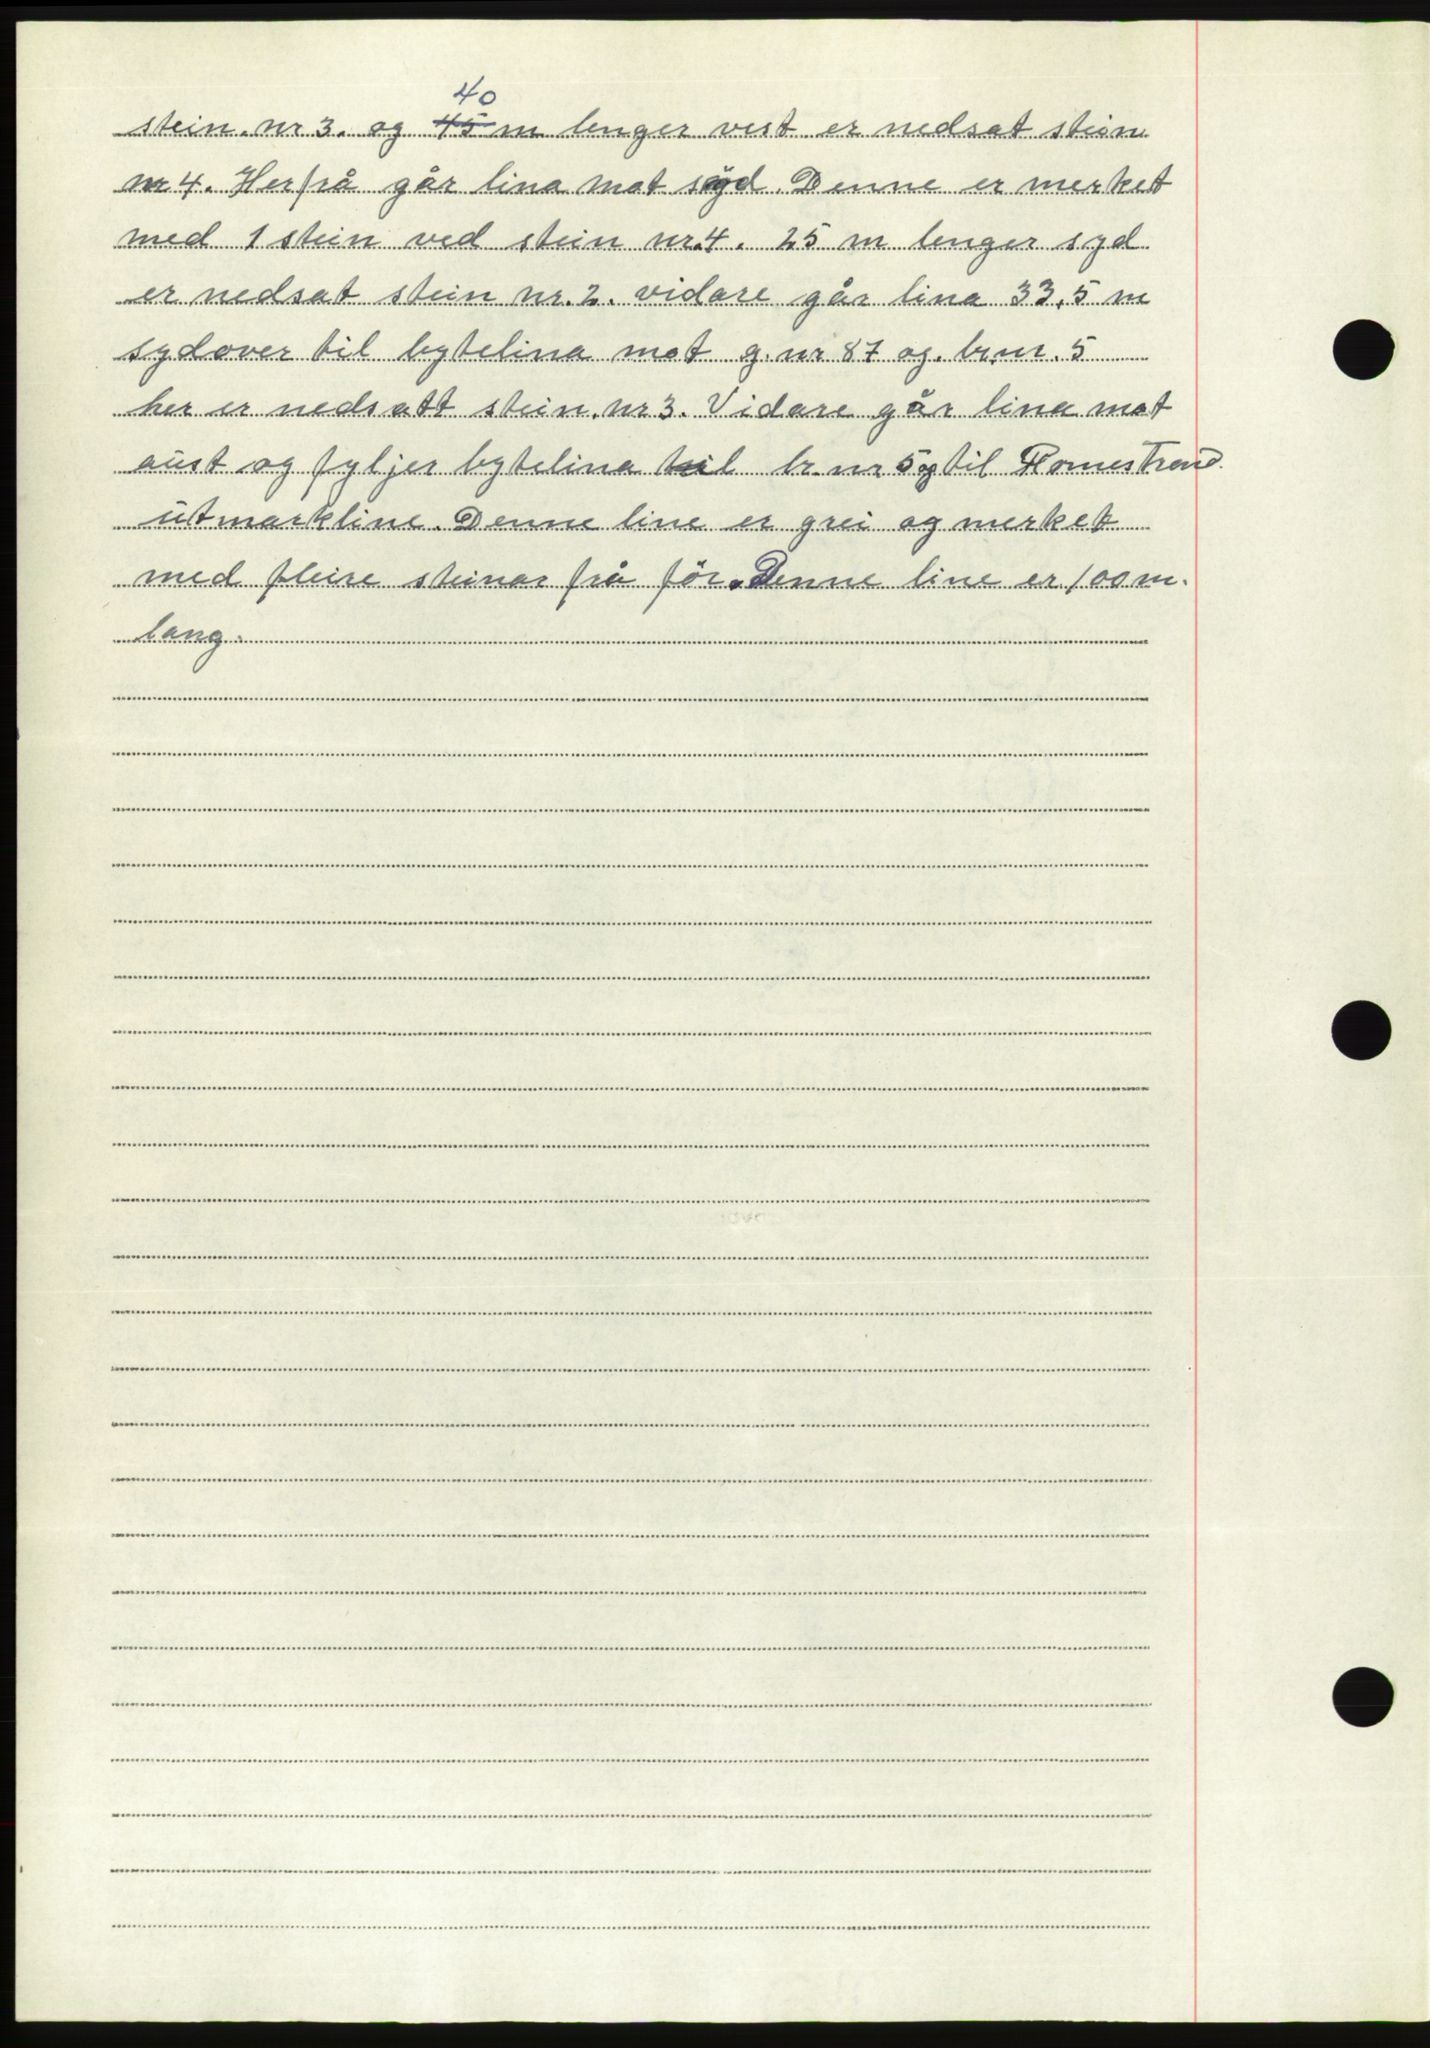 40
stein. nr 3. og 45 m lenger vest er nedsat stein
nr 4. Herfrå går lina mot syd. Denne er merket
med 1 stein ved stein nr. 4. 25 m lenger syd
er nedsat stein nr. 2. vidare går lina 33,5 m
sydover til bytelina mot g. nr 87 og. br.nr. 5
her er nedsatt stein. nr 3. Vidare går lina mot
aust og fyljer bytelina til br. nr 5 og til
utmarkline. Denne line er grei og merket
med fleire steinar frå før. Denne line er 100 m.
lang.